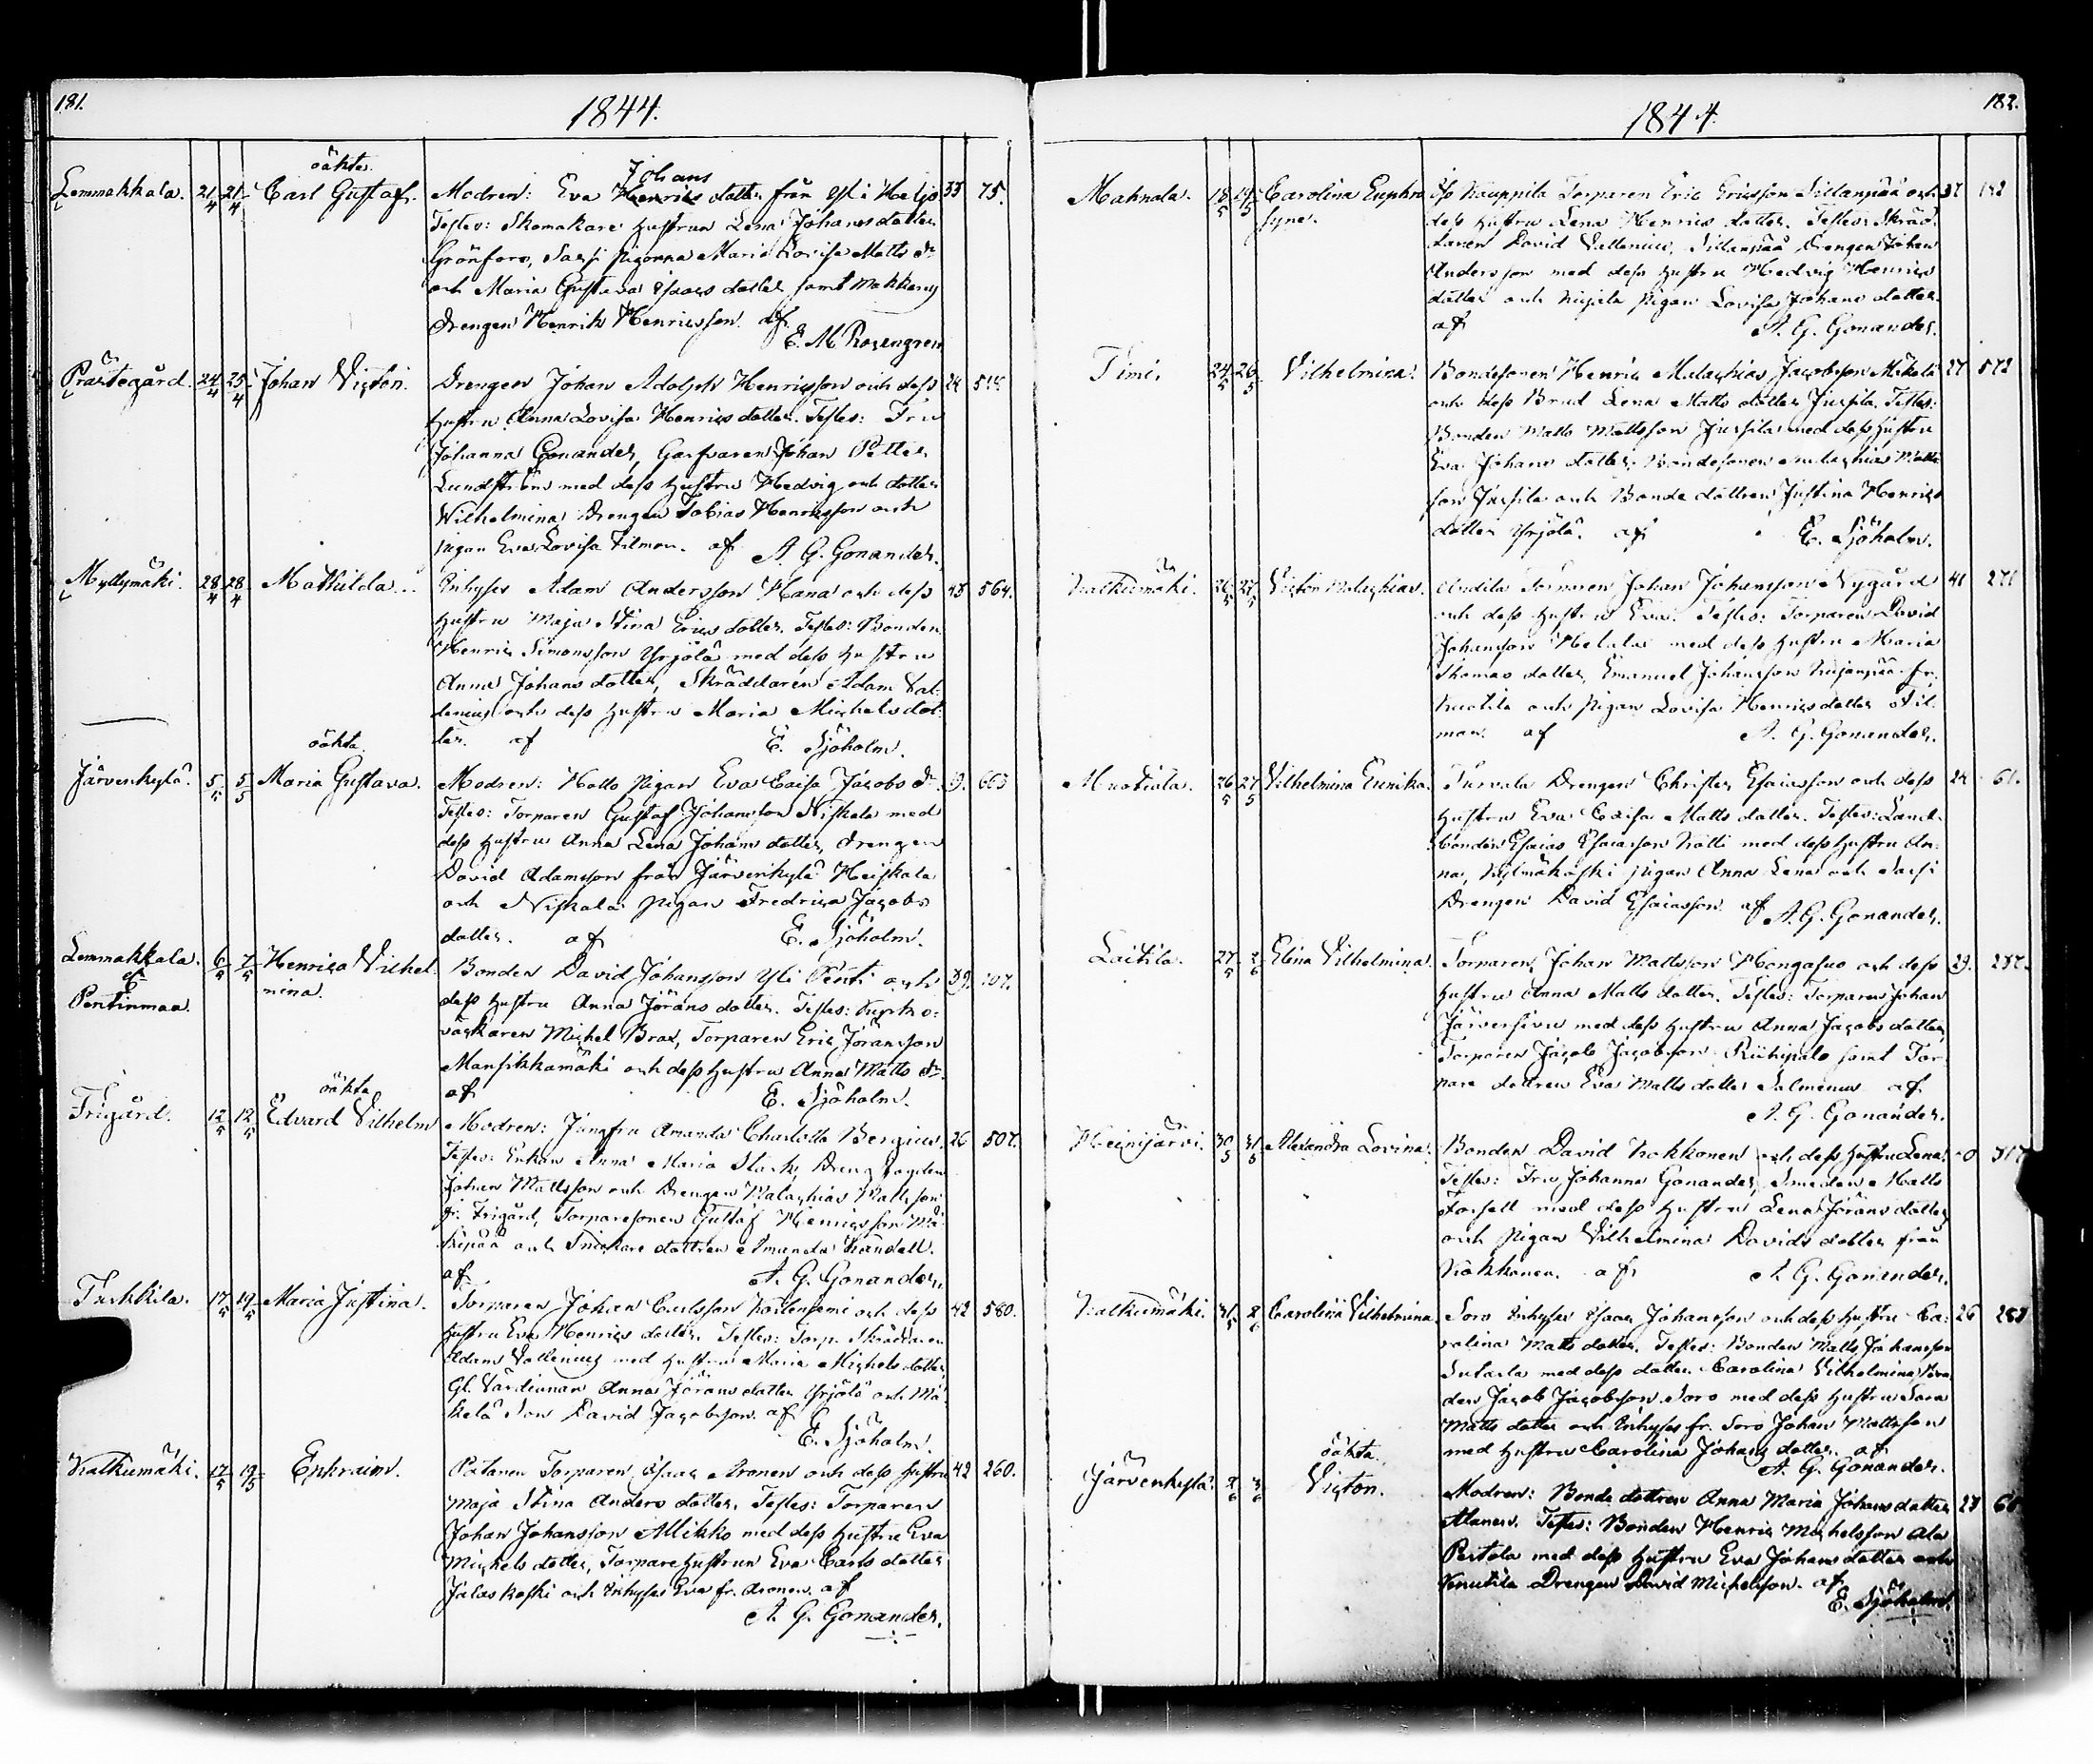 181.
1844.
oäkta
Lemmakkala. 21/4 21/4 Carl Gustaf.
Johans
Modren: Eva Henrics dotter från Yli Heljo 33 75.
Testes: Skomakare hustrun Lena Johans dotter
Grönfors, Sassi pigorna Maria Lovisa Matts dr
och Maria Gustava Isaacs dotter samt
drengen Henrik Henricsson. af
E. M. Rosengren
Prästegård. 24/4 25/4 Johan Victor. Drengen Johan Adolph Henricsson och dess 24
hustru Anna Lovisa Henrics dotter. Testes: Fru
Johanna Gonander, Garfvaren Johan Petter
Lundström med dess hustru Hedvig och dotter
Wilhelmina, Drengen Tobias Henricsson och
pigan Eva Lovisa Filmon. af A. G. Gonander.
Myllymäki. 28/4 28/4 Mathilda. Inhyses Adam Andersson Hana och dess 43 564.
hustru Maja Stina Erics dotter. Testes: Bonden
Henric Simonsson Yrjölä med dess hustru
Anna Johans dotter, Skräddaren Adam Val-
lenius och dess hustru Maria Michels dot-
ter. af E. Sjöholm.
oäkta.
Järvenkylä. 5/5 5/5 Maria Gustava. Modren: pigan Eva Caisa Jacobs dr
Testes: Torparen Gustaf Johansson Niskala med
dess hustru Anna Lena Johans dotter, drengen
David Adamsson från Järvenkylä Heiskala
och Niskala pigan Fredrica Jacobs
dotter. af E. Sjöholm.
Lemmakkala 6/5 7/5 Henrica Vilhel- Bonden David Johansson Yli Penti och 39. 107.
et mina. dess hustru Anna Jörans dotter. Testes: Kyrko-
Pentinmaa. väktaren Michel Brax, Torparen Eric Jöransson
Mansikkamäki och dess hustru Anna Matts dr
af E. Sjöholm.
oäkta
Frigård. 12/5 12/5 Edvard Vilhelm Modren: Jungfru Amanda Charlotta Bergius. 26 507.
Testes: Enkan Anna Maria Stark, Dreng
Johan Mattsson och Drengen Malachias Mattsson
fr. Frigård, Torparesonen Gustaf Henricsson
och Snickare dottren Amanda
af A. G. Gonander.
Tuskkila. 17/5 19/5 Maria Justina. Torparen Johan Carlsson och dess 42 580.
hustru Eva Henrics dotter. Testes: Torp. Skräddaren
Adam Vallenius med hustru Maria Michels dotter,
Gl. Värdinnan Anna Jörans dotter Yrjölä och Mä-
kelä Son David Jacobsson. af
E. Sjöholm.
Katkumäki. 17/5 19/5 Ephraim. Torparen Isaac Aronen och dess hustru 42 260.
Maja Stina Anders dotter. Testes: Torparen
Johan Johansson Mikko med dess hustru Eva
Michels dotter, Torpare hustrun Eva Carls dotter
Jalaskoski och Inhyses Eva fr. Aronen. af
A. G. Gonander.
182.
1844.
Mahnala. 18/5 19/5 Carolina Euphro- Kauppila Torparen Eric Ericsson Sillanpää och 37
syne. dess hustru Lena Henrics dotter. Testes: Skräd-
daren David Vallenius, Sillanpää Drengen Johan
Andersson med dess hustru Hedvig Henrics
dotter och pigan Lovisa Johans dotter.
af A. G. Gonander.
Timi. 24/5 26/5 Vilhelmina. Bondesonen Henric Malachias Jacobsson Mäkelä 27 572
och dess Brud Lena Matts dotter Jussila. Testes:
Bonden Matts Mattsson Jussila med dess hustru
Eva Johans dotter, Bondesonen Malachias Matts-
son Jussila och Bonde dottren Justina Henrics
dotter Yrjölä. af E. Sjöholm.
Katkumäki. 26/5 27/5 Victor Malachias. Torparen Johan Johansson Nygård 41 271
och dess hustru Eva. Testes: Torparen David
Johansson med dess hustru Maria
Thomas dotter, Emanuel Johansson fr.
och pigan Lovisa Henrics dotter Fil-
man. af A. G. Gonander.
Muotiala. 26/5 27/5 Vilhelmina Eunika. Turvala Drengen Christer Esaiasson och dess 24 61.
hustru Eva Caisa Matts dotter. Testes: Land-
bonden Esaias Esaiasson med dess hustru An-
na, pigan Anna Lena och Sassi
Drengen David Esaiasson. af A. G. Gonander.
Laitila. 27/5 2/6 Elina Vilhelmina. Torparen Johan Mattsson Hongasuo och dess 29. 287.
hustru Anna Matts dotter. Testes: Torparen Johan
Järvensivu med dess hustru Anna Jacobs dotter,
Torparen Jacob Jacobsson Riihipalo samt Tor-
pare dottren Eva Matts dotter Salmenius af
A. G. Gonander.
Heinijärvi. 30/5 31/5 Alexandra Lovina. Bonden David Kokkonen och dess hustru Lena. 317
Testes: Fru Johanna Gonander, Smeden Matts
Forsell med dess hustru Lena Jörans dotter
och pigan Vilhelmina Davids dotter från
Kokkonen. af A. G. Gonander.
Katkumäki. 31/5 2/6 Carolina Vilhelmina. Soro Inhyses Isaac Johansson och dess hustru Ca- 26
rolina Matts dotter. Testes: Bonden Matts Johansson
med dess dotter Carolina Vilhelmina, Bon-
den Jacob Jacobsson Soro med dess hustru Sara
Matts dotter och Inhyses fr. Soro Johan Mattsson
med hustru Carolina Johans dotter. af
A. G. Gonander.
oäkta.
Järvenkylä. 2/6 3/6 Victor. Modren: Bonde dottren Anna Maria Johans dotter 23
Alanen. Testes: Bonden Henric Michelsson Ala
Pertola med dess hustru Eva Johans dotter och
Drengen David Michelsson. af
E. Sjöholm.